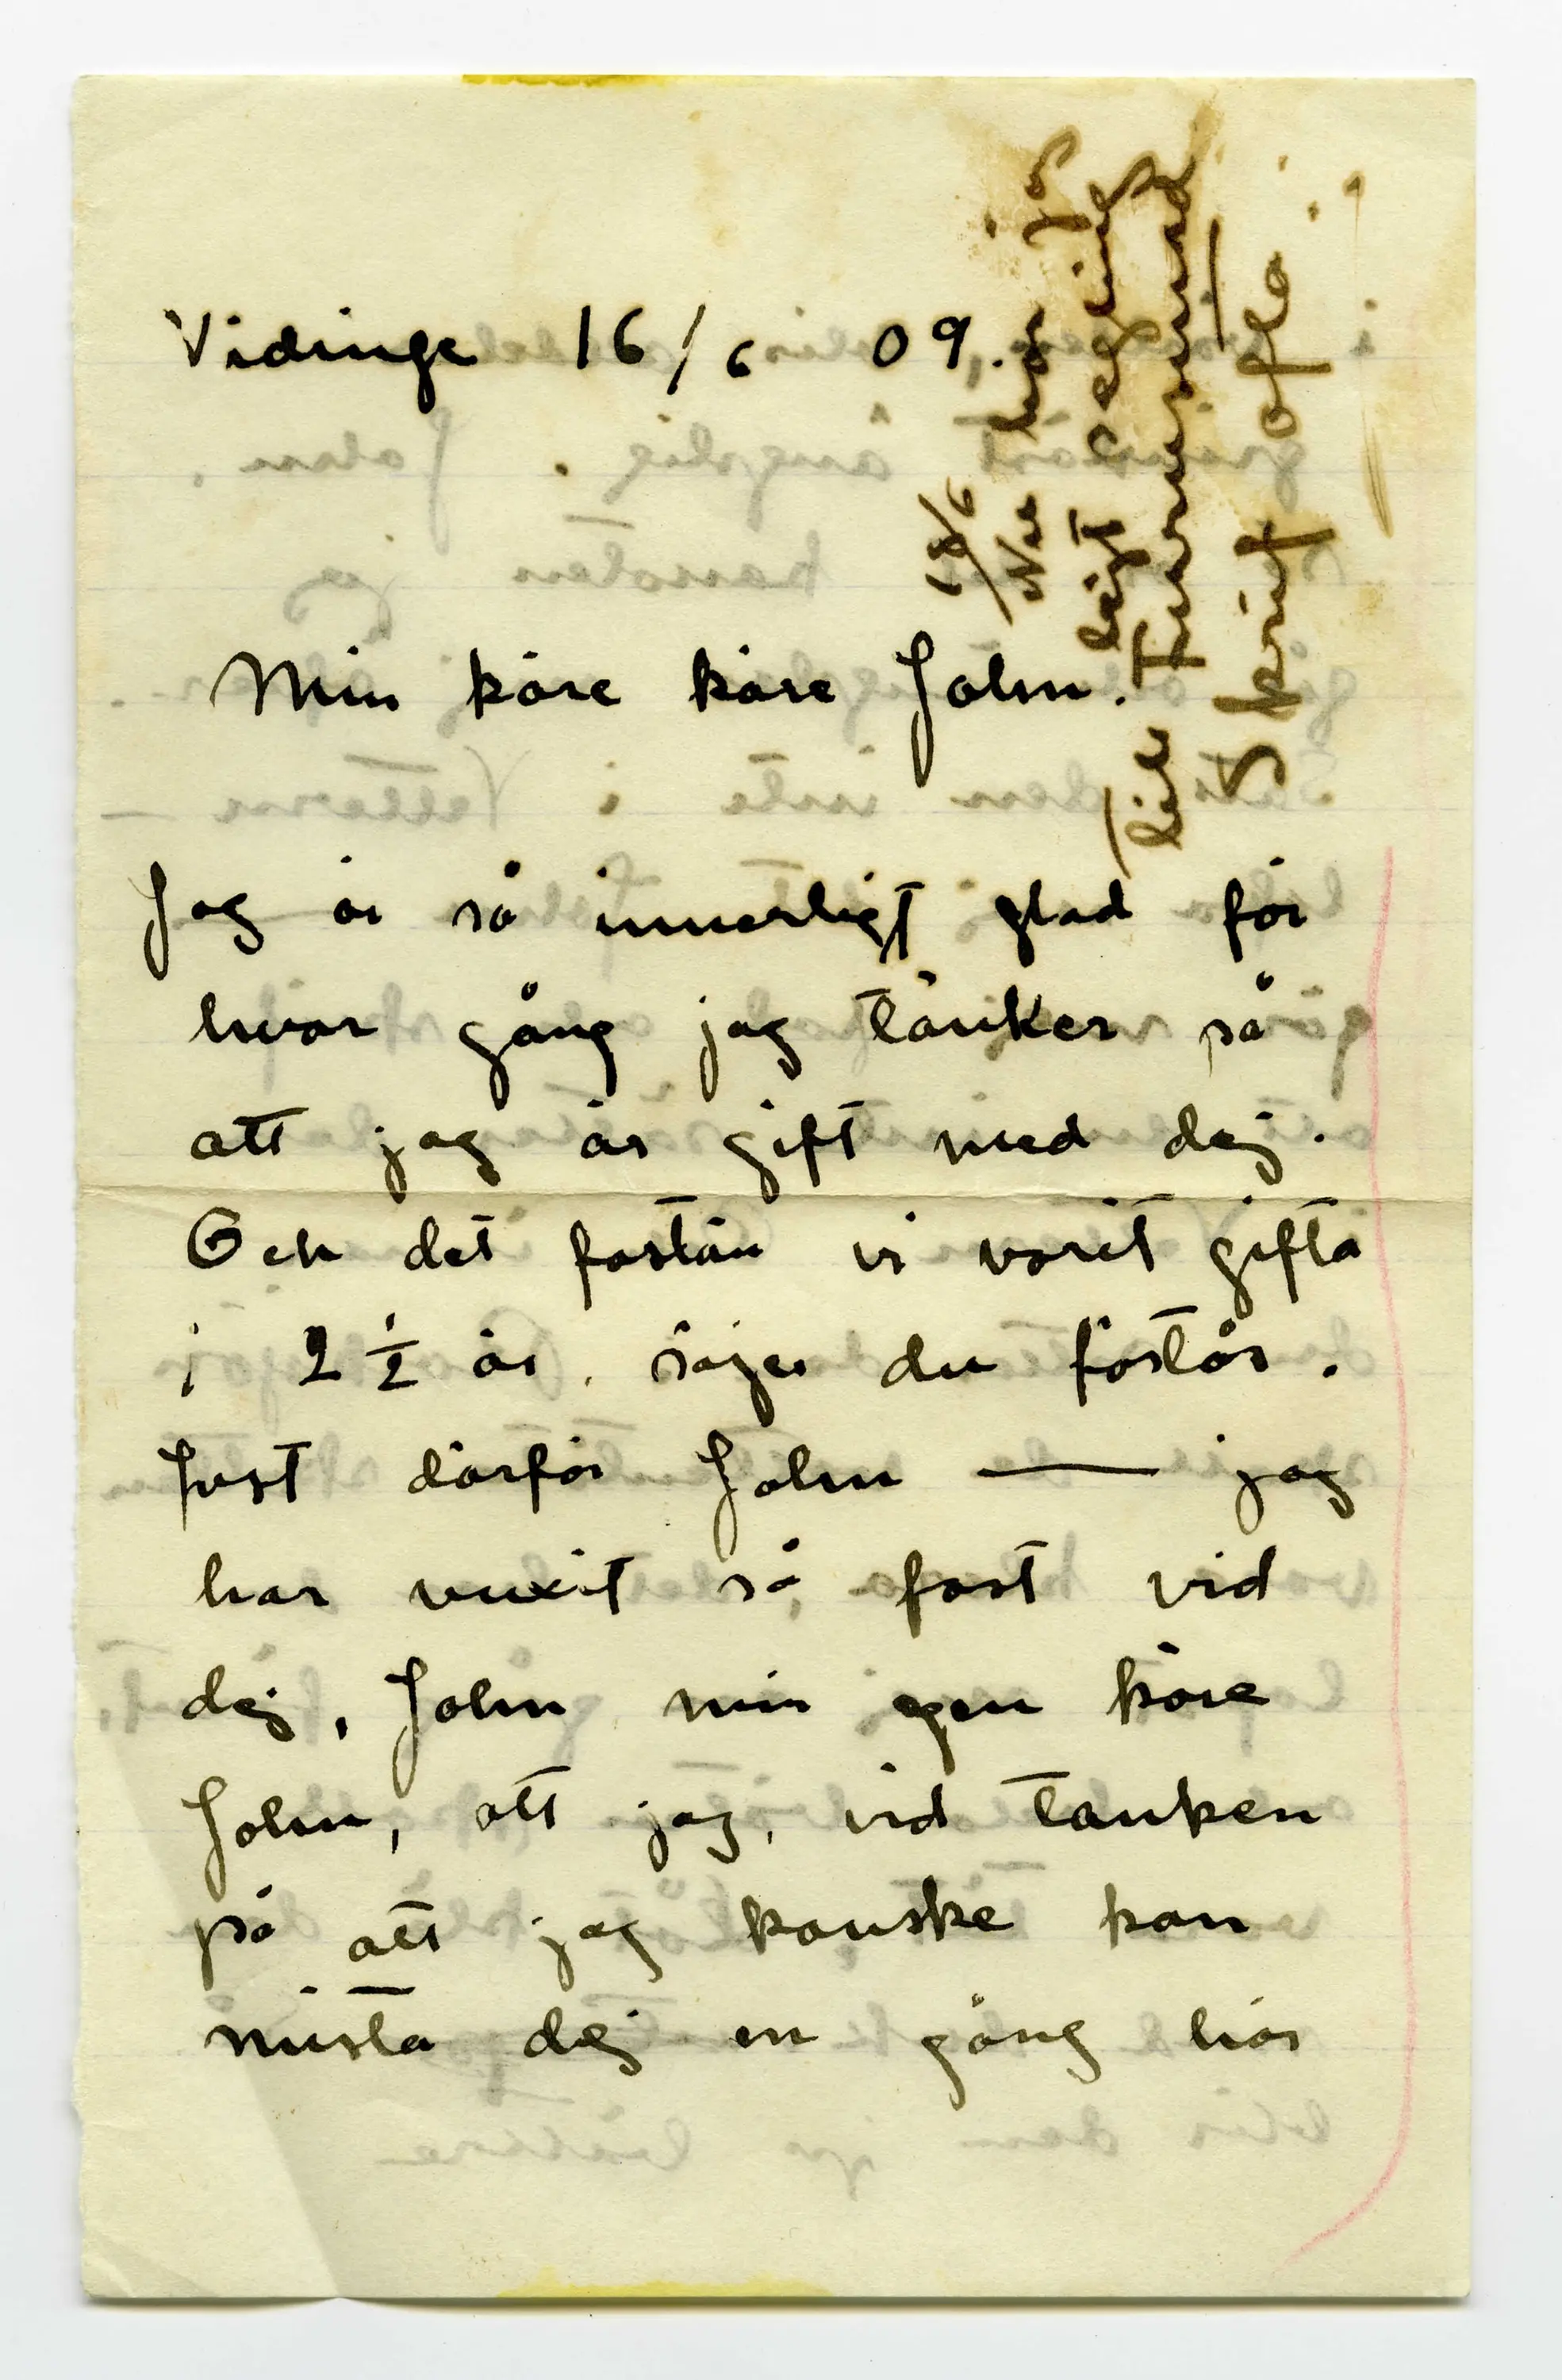 Vidinge 16/6 09.
18/6
Nu har jag
läst
till
Skrif ofta
Min käre käre John.
Jag är så innerligt glad för
hvar gång jag tänker på
att jag är gift med dej.
Och det fastän vi varit gifta
i 2 1/2 år, säjer du förstås.
Just därför John — jag
har vuxit så fast vid
dej, John min egen käre
John, att jag, vid tanken
på att jag kanske kan
mista dej en gång här